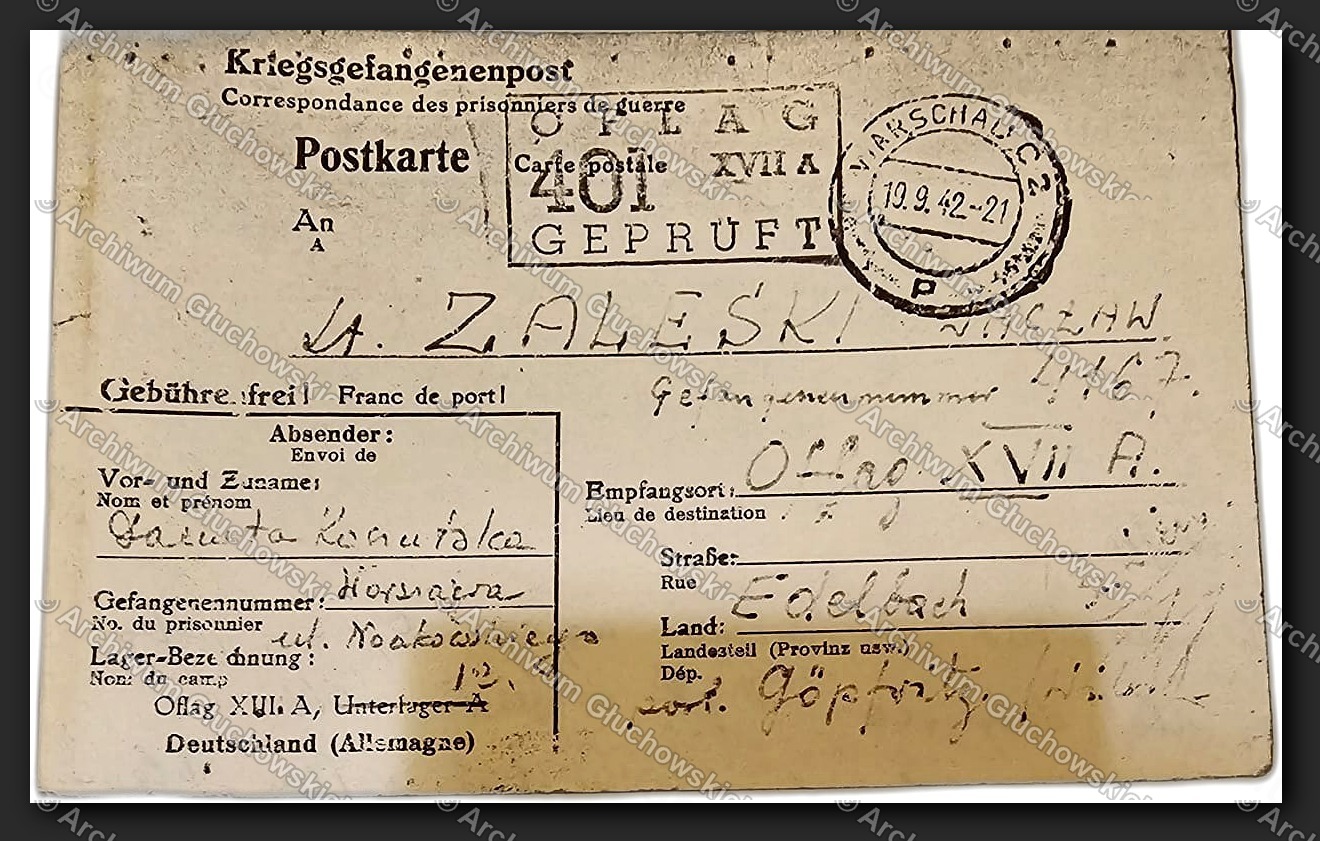 Kriegsgefangenenpost
Correspondance des prisonniers de guerre
OFLAG
Postkarte Carte postale XVII A
401
GEPRÜFT
WARSCHAU C2
19.9.42-21
P
An
A
Lt. ZALESKI WACŁAW
Gebührenfrei! Franc de port!
Gefangenennummer
Absender:
Envoi de
Vor- und Zuname:
Nom et prénom
Danuta
Empfangsort: Oflag XVII A.
Lieu de destination
Straße:
Rue
Gefangenennummer:
No. du prisonnier
ul. Noakowskiego
12.
Edelbach
Land:
Landesteil (Provinz usw.)
Dép.
Göpfritz
Lager-Bezeichnung:
Nom du camp
Oflag XVII A, Unterlager A
Deutschland (Allemagne)
© Archiwum Głuchowskich